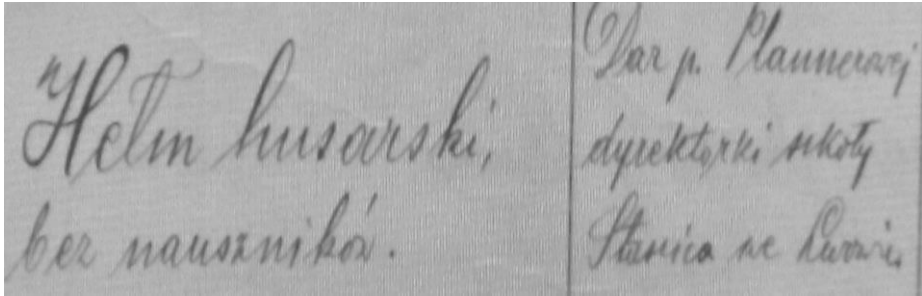 Hełm husarski,
bez nauszników.
Dar p. Plannerowej
dyrektorki szkoły
Staszica we Lwowie